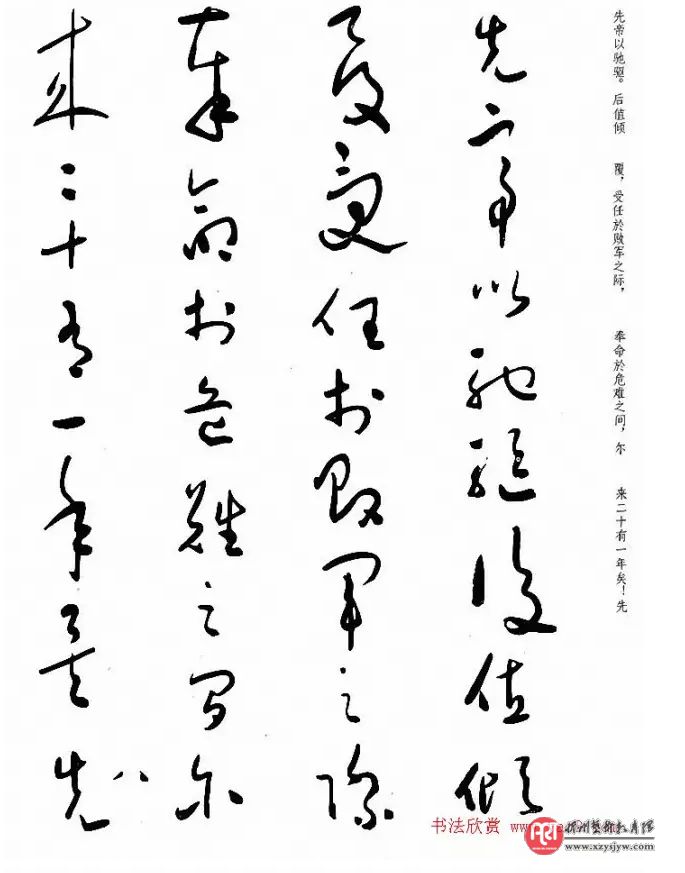 先帝以驰驱後值倾
覆受任於败军之际
奉命於危难之间尔
来二十有一年矣先
先帝以驰驱。后值倾
覆，受任於败军之际，
奉命於危难之间，尔
来二十有一年矣！先
书法欣赏 www.
ART
www.xzysjyw.com